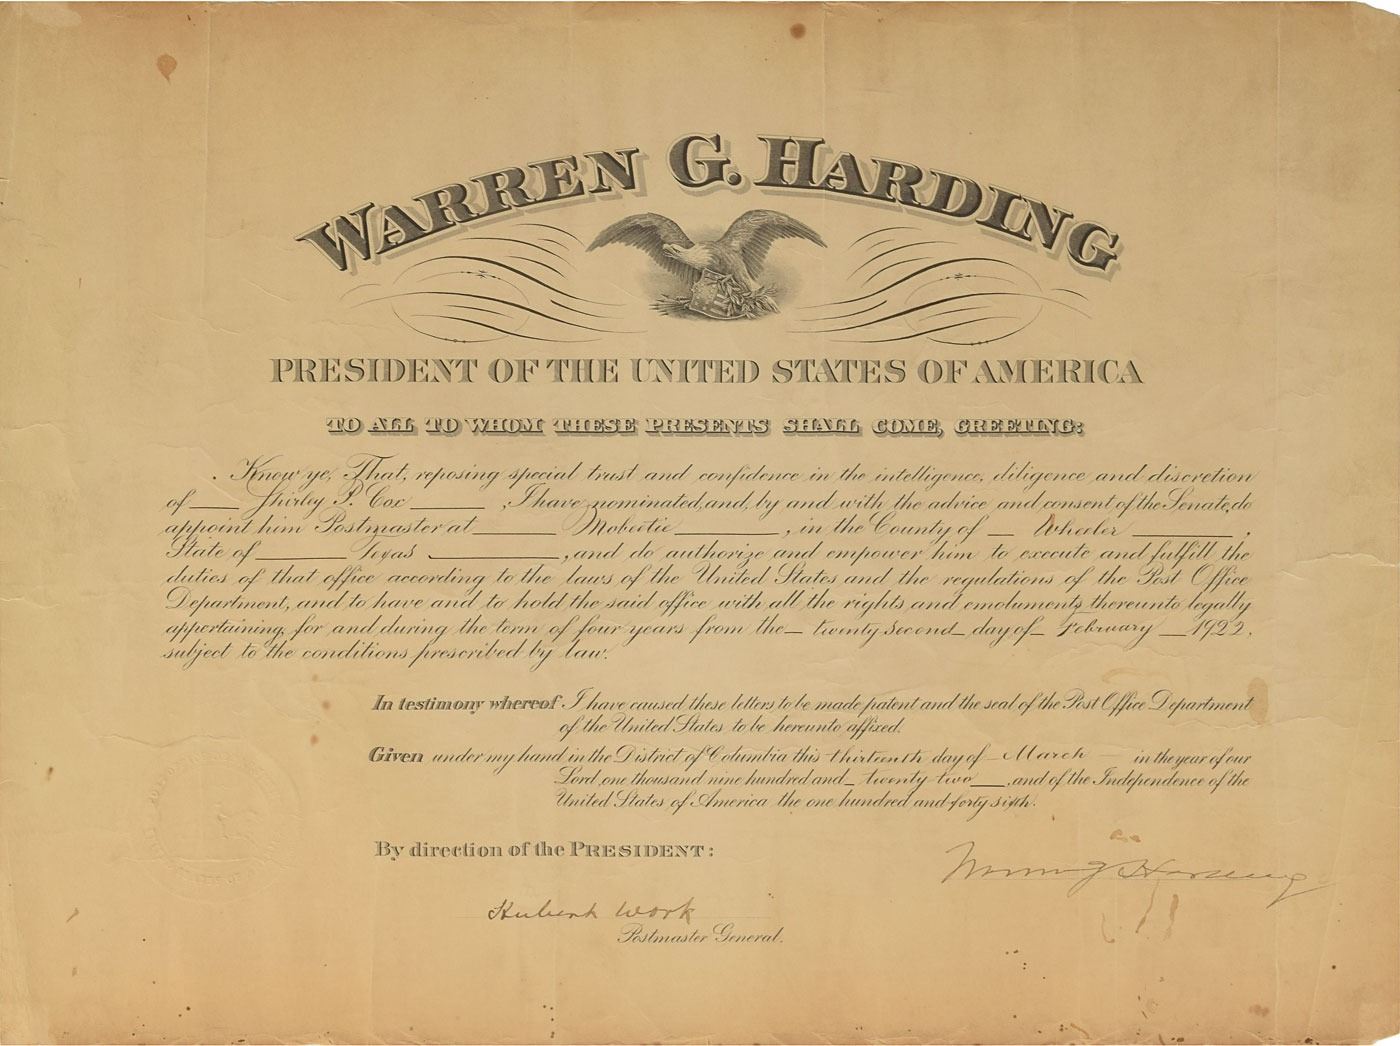 WARREN G. HARDING
PRESIDENT OF THE UNITED STATES OF AMERICA
TO ALL TO WHOM THESE PRESENTS SHALL COME, GREETING:
Know ye, That, reposing special trust and confidence in the intelligence, diligence and discretion
of Shirley P. Cox, I have nominated, and, by and with the advice and consent of the Senate, do
appoint him Postmaster at Mobeetie, in the County of Wheeler,
State of Texas, and do authorize and empower him to execute and fulfill the
duties of that office according to the laws of the United States and the regulations of the Post Office
Department, and to have and to hold the said office with all the rights and emoluments thereunto legally
appertaining, for and during the term of four years from the twenty second day of February 1922,
subject to the conditions prescribed by law.
In testimony whereof I have caused these letters to be made patent and the seal of the Post Office Department
of the United States to be hereunto affixed.
Given under my hand in the District of Columbia this thirteenth day of March in the year of our
Lord one thousand nine hundred and twenty two, and of the Independence of the
United States of America the one hundred and forty sixth.
By direction of the PRESIDENT:
Warren G Harding
Hubert Work
Postmaster General.